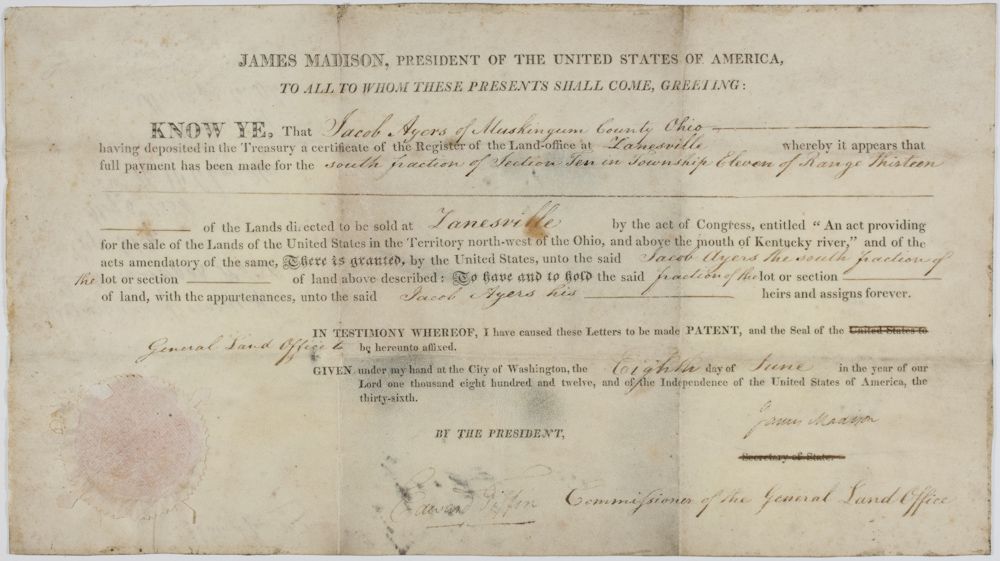 JAMES MADISON, PRESIDENT OF THE UNITED STATES OF AMERICA,
TO ALL TO WHOM THESE PRESENTS SHALL COME, GREETING:
KNOW YE, That Jacob Ayers of Muskingum County Ohio
having deposited in the Treasury a certificate of the Register of the Land-office at Zanesville whereby it appears that
full payment has been made for the south fraction of Section Ten in Township Eleven of Range thirteen
of the Lands directed to be sold at Zanesville by the act of Congress, entitled “An act providing
for the sale of the Lands of the United States in the Territory north-west of the Ohio, and above the mouth of Kentucky river,” and of the
acts amendatory of the same, There is granted, by the United States, unto the said Jacob Ayers the south fraction of
the lot or section of land above described: To have and to hold the said fraction of the lot or section
of land, with the appurtenances, unto the said Jacob Ayers his heirs and assigns forever.
IN TESTIMONY WHEREOF, I have caused these Letters to be made PATENT, and the Seal of the United States to
General Land Office to be hereunto affixed.
GIVEN under my hand at the City of Washington, the Eighth day of June in the year of our
Lord one thousand eight hundred and twelve, and of the Independence of the United States of America, the
thirty-sixth.
James Madison
BY THE PRESIDENT,
Secretary of State.
Edward Tiffin Commissioner of the General Land Office